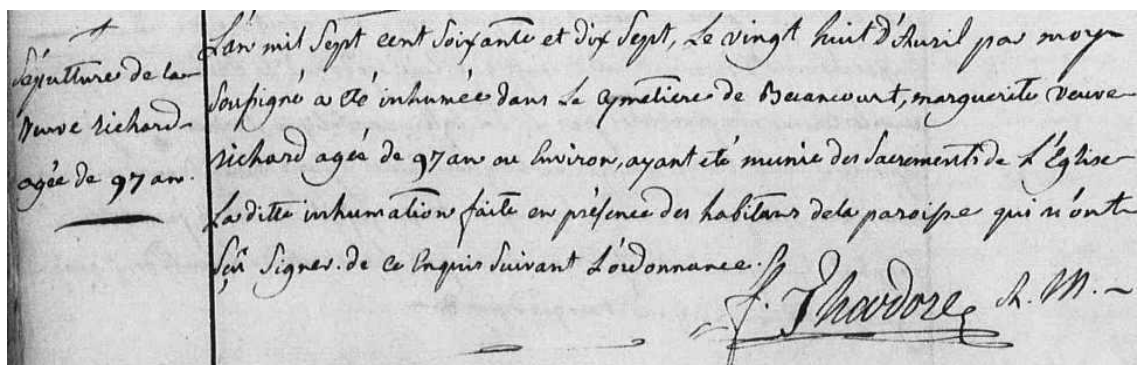 Sepulture de la
veuve richard
agée de 97 an.
L'an mil sept cent soixante et dix sept, le vingt huit d'Avril par moy
soussigné a été inhumée dans le cymetiere de Becancourt, marguerite veuve
richard agée de 97 an ou Environ, ayant été munie des Sacrements de L'Eglise
La ditte inhumation faite en présence des habitans de la paroisse qui n'ont
sçu signer. de ce Enquis suivant L'ordonnance.
f. Theodore, R. M.